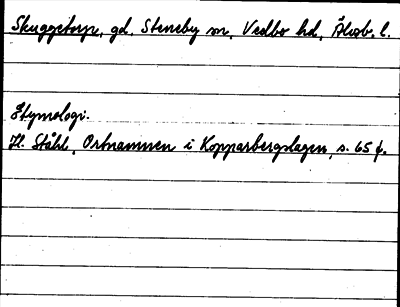 Skuggetorp, gd, Steneby sn, Vedbo hd, Älvsb. l.
Etymologi.
H. Ståhl, Ortnamnen i Kopparbergslagen, s. 65 f.